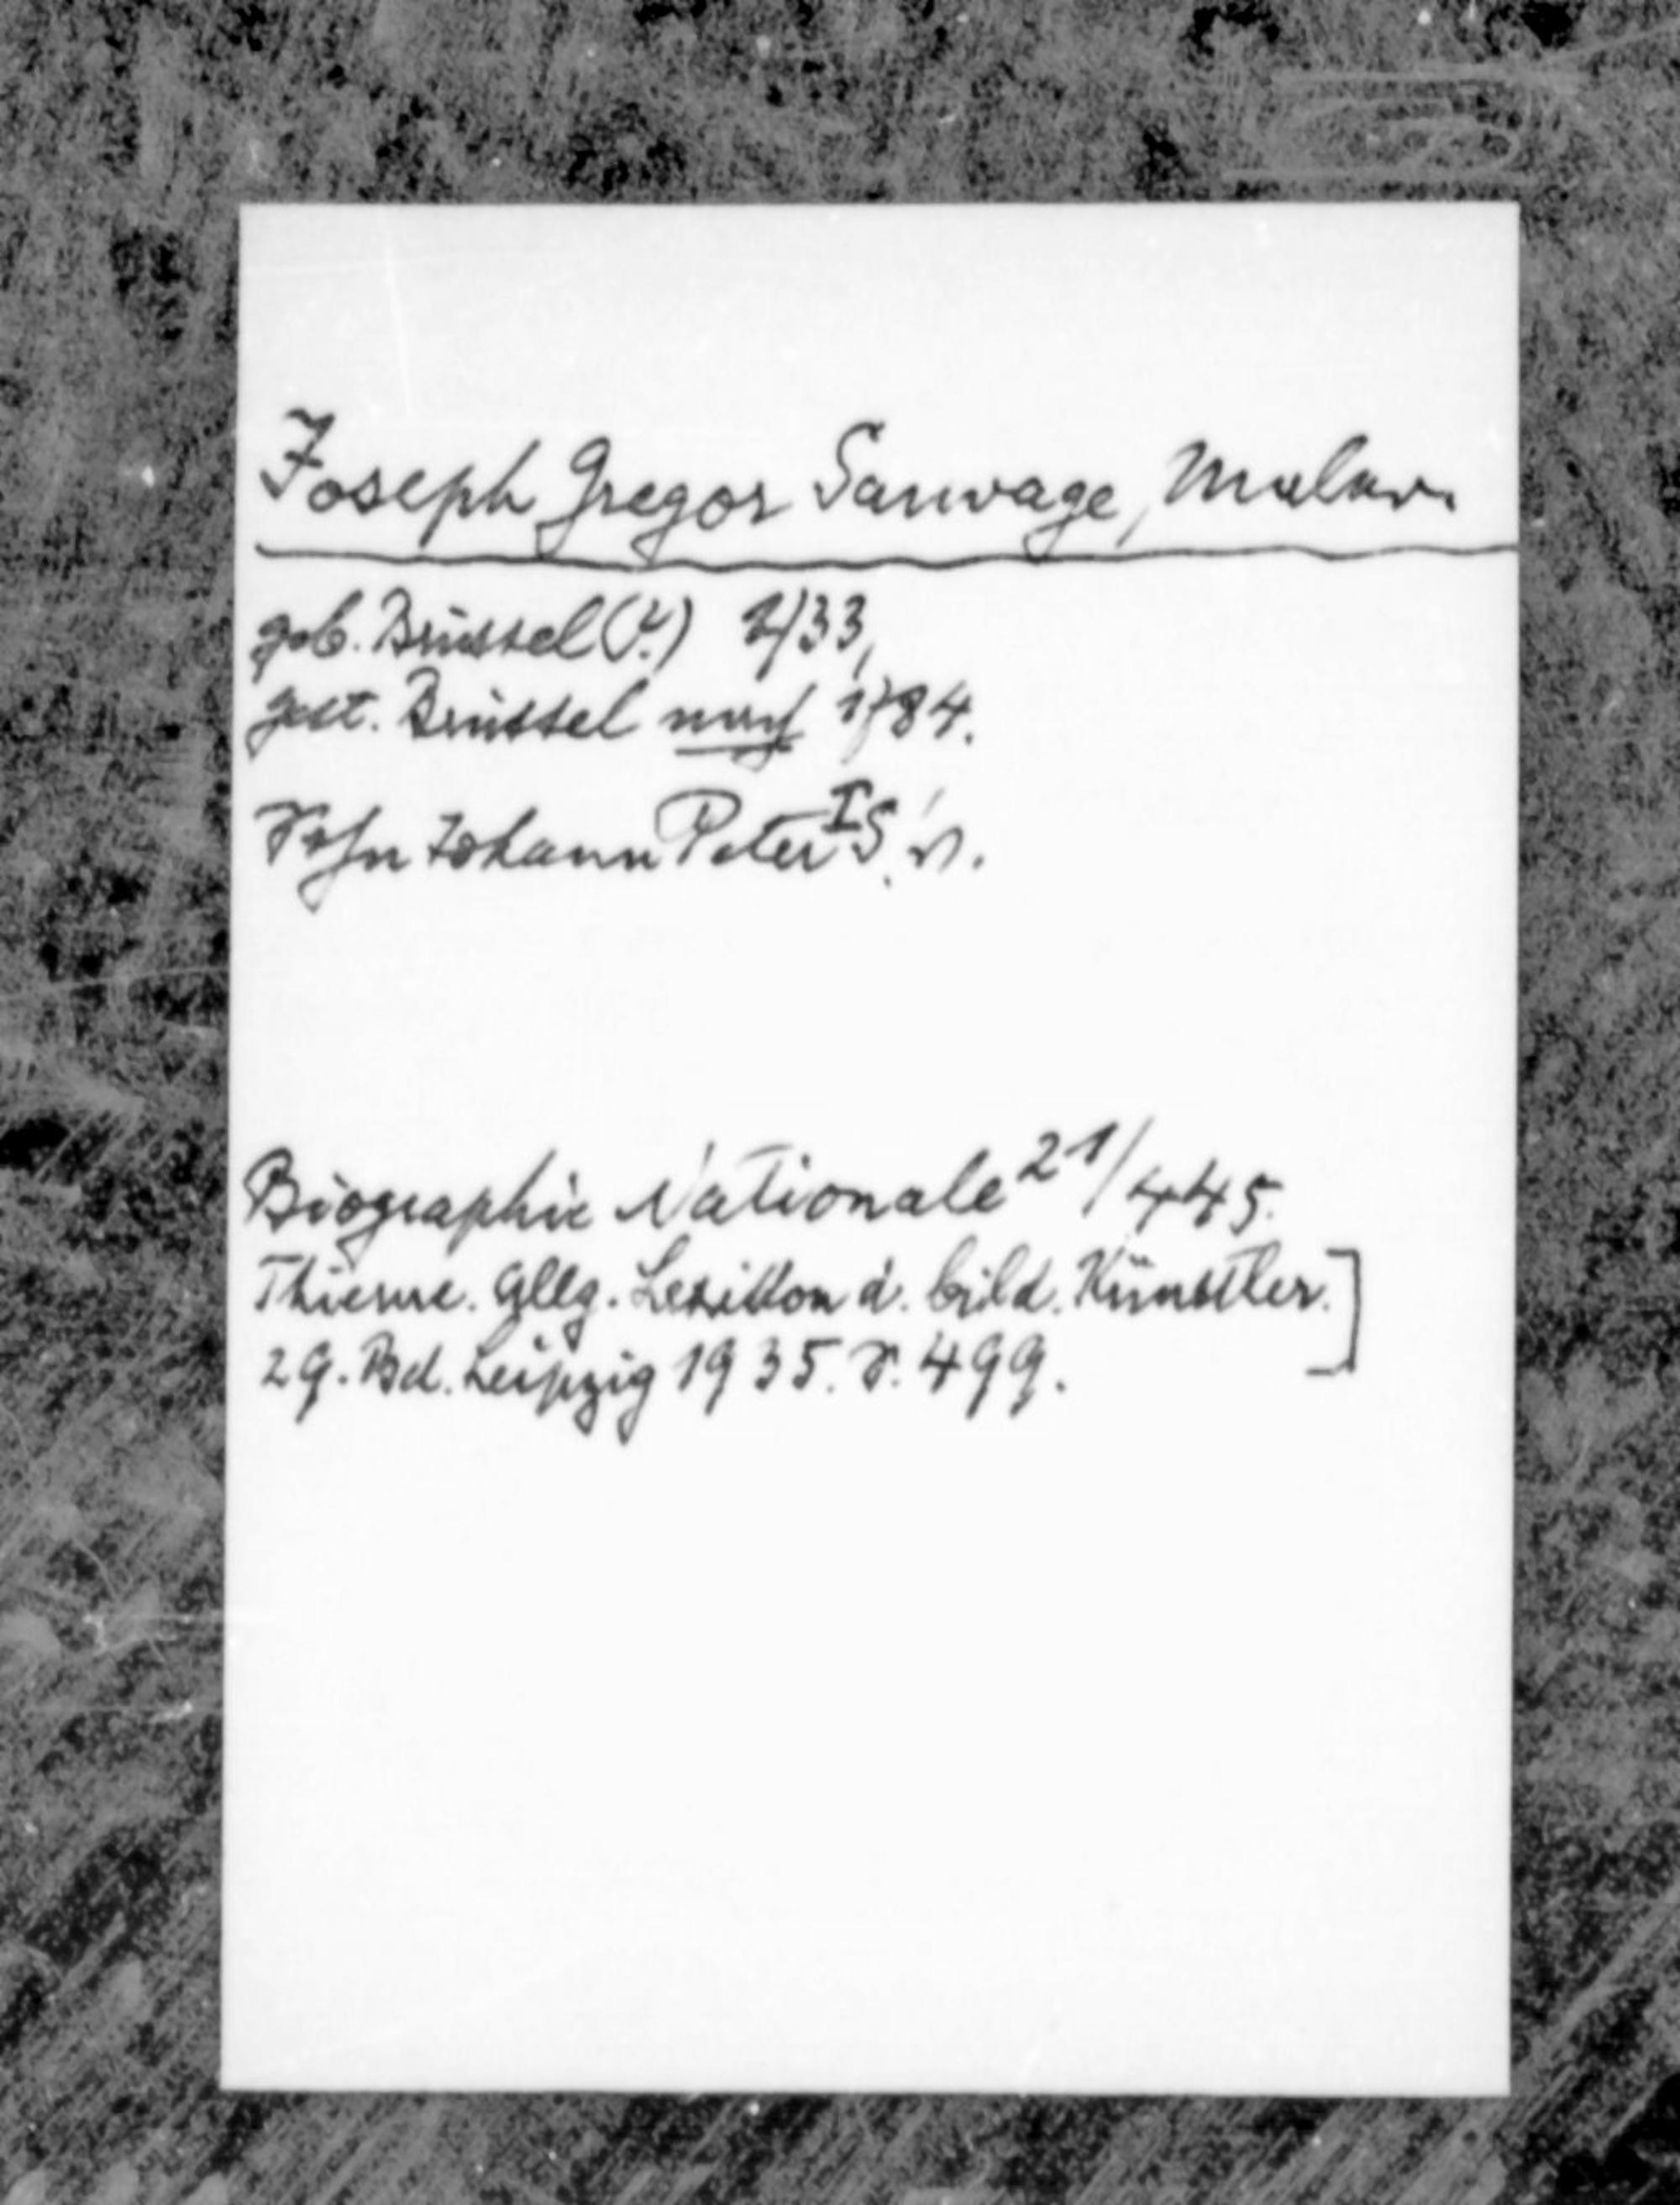 Joseph Gregor Sauvage, Maler.
geb. Brüssel (?) 1733,
gest. Brüssel nach 1784.
Sohn Johann Peter I S.'s.
Biographie Nationale 21/445.
Thieme. Allg. Lexikon d. bild. Künstler.]
29. Bd. Leipzig 1935. S. 499.